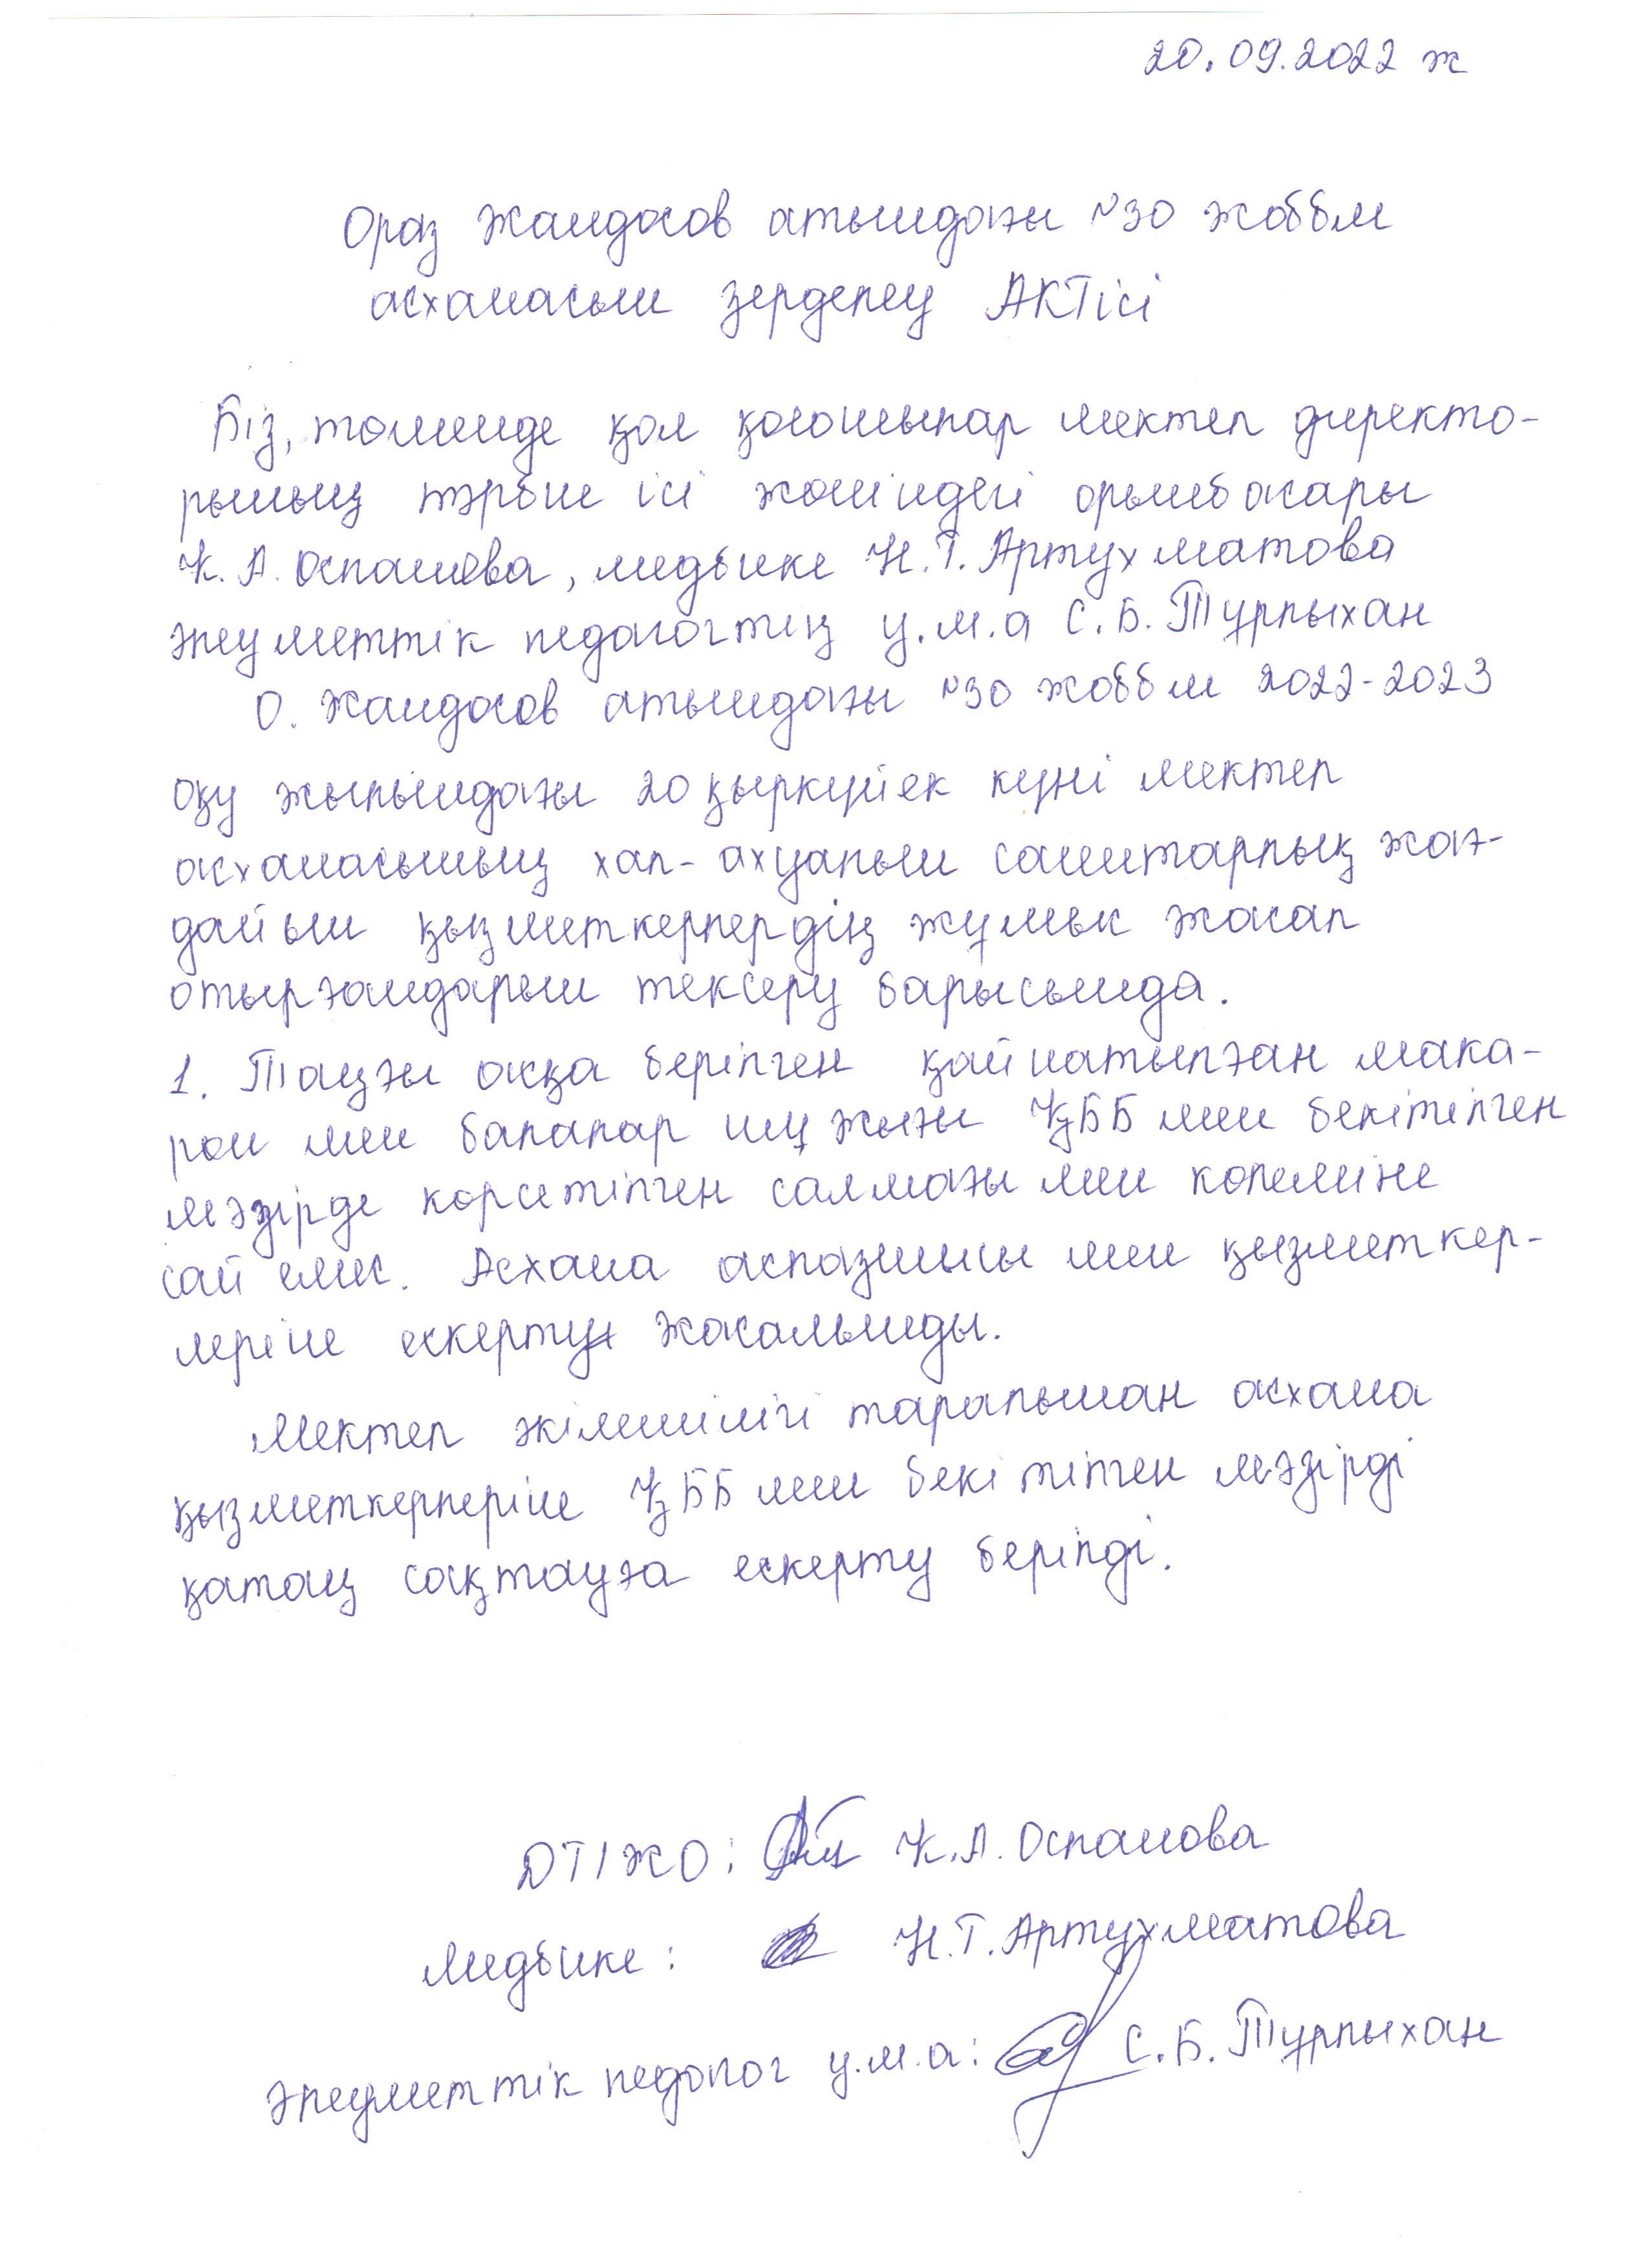 20.09.2022 ж
Ораз Жандосов атындағы №30 жоббм
асханасын зерделеу АКТісі
Біз, төменде қол қоюшылар мектеп директо-
рының тәрбие ісі жөніндегі орынбасары
К.А. Оспанова, медбике Н.Т. Артухматова
әлеуметтік педагогтің у.м.а С.Б. Тұрлыхан
О. Жандосов атындағы №30 жоббм 2022-2023
оқу жылындағы 20 қыркүйек күні мектеп
асханасының хал-ахуалын санитарлық жағ-
дайын қызметкерлердің жұмыс жасап
отырғандарын тексеру барысында.
1. Таңғы асқа берілген қайнатылған мака-
рон мен балалар ішу жағы ҚББ мен бекітілген
мәзірде көрсетілген салмағы мен көлеміне
сай емес. Асхана аспазшысы мен қызметкер-
леріне ескерту жасалынды.
Мектеп әкімшілігі тарапынан асхана
қызметкерлеріне ҚББ мен бекітілген мәзірді
қатаң сақтауға ескерту берілді.
ДТІЖО: К.А. Оспанова
Медбике: Н.Т. Артухматова
Әлеуметтік педагог у.м.а: С.Б. Тұрлыхан